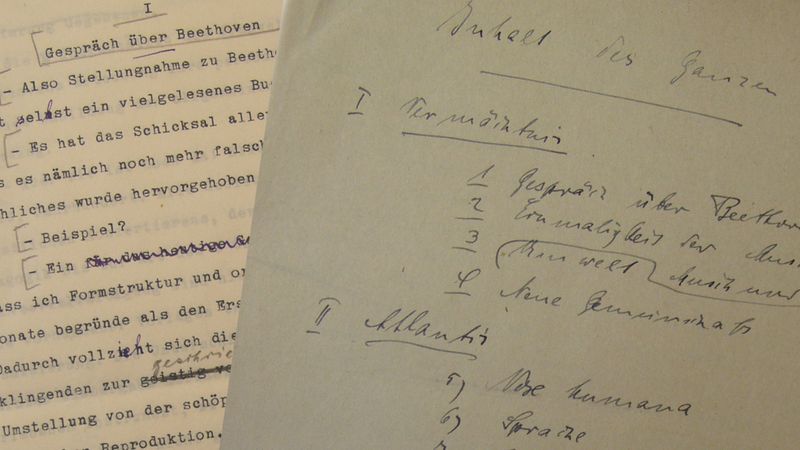 I
Gespräch über Beethoven
- Also Stellungnahme zu Beeth
selbst ein vielgelesenes Bu
- Es hat das Schicksal alle
s es nämlich noch mehr falsch
hliches wurde hervorgehoben
- Beispiel?
- Ein
ass ich Formstruktur und or
onate begründe als den Ers
Dadurch vollzieht sich die
geschrie
klingenden zur geistig ve
Umstellung von der schöp
Reproduktion.
Inhalt des Ganzen
I Vermächtnis
1 Gespräch über Beetho
2 Einmaligkeit der Mus
3 Umwelt Musik und
4 Neue Gemeinschaft
II Atlantis
5) Voce humana
6) Sprache
7